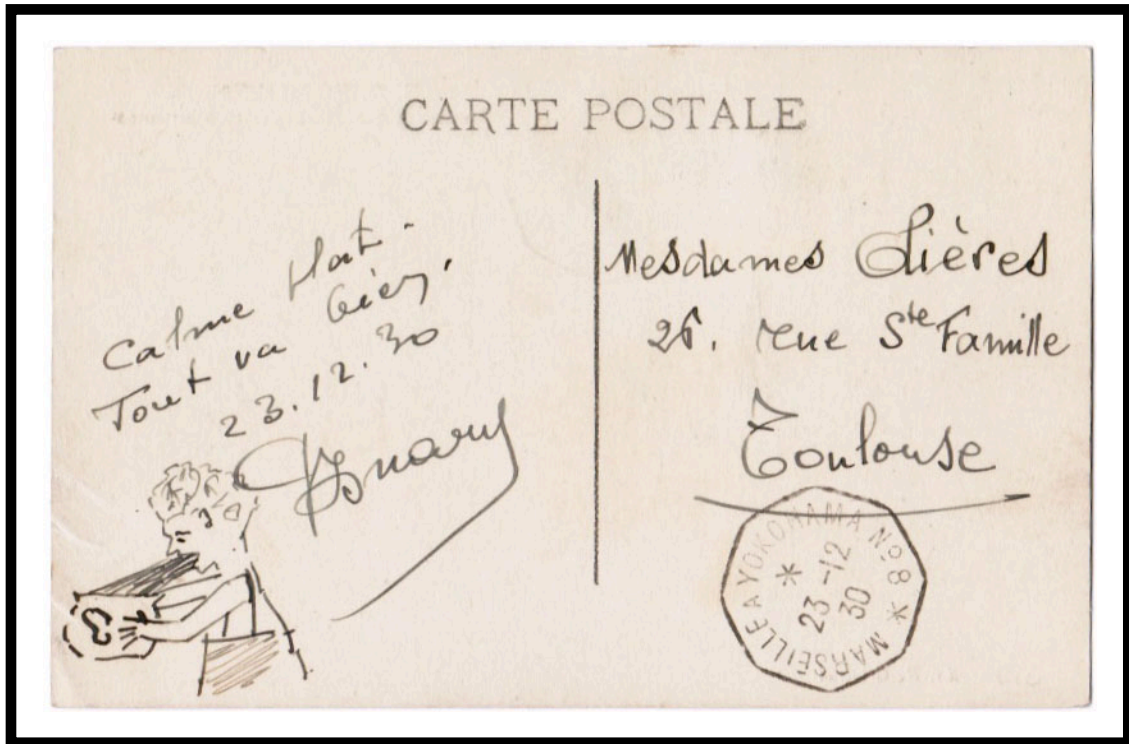 CARTE POSTALE
Calme plat.
Tout va bien.
23.12.30
Mesdames Lières
26. rue Ste Famille
Toulouse
MARSEILLE A YOKOHAMA Nº8
23-12
30